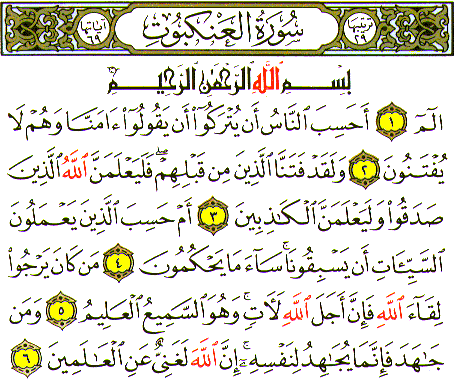 ترتيبها ٢٩ سُورَةُ الْعَنْكَبُوتِ آياتها ٦٩
بِسْمِ اللَّهِ الرَّحْمَٰنِ الرَّحِيمِ
الٓمٓ ١ أَحَسِبَ ٱلنَّاسُ أَن يُتْرَكُوٓا۟ أَن يَقُولُوٓا۟ ءَامَنَّا وَهُمْ لَا
يُفْتَنُونَ ٢ وَلَقَدْ فَتَنَّا ٱلَّذِينَ مِن قَبْلِهِمْ ۖ فَلَيَعْلَمَنَّ ٱللَّهُ ٱلَّذِينَ
صَدَقُوا۟ وَلَيَعْلَمَنَّ ٱلْكَٰذِبِينَ ٣ أَمْ حَسِبَ ٱلَّذِينَ يَعْمَلُونَ
ٱلسَّيِّـَٔاتِ أَن يَسْبِقُونَا ۚ سَآءَ مَا يَحْكُمُونَ ٤ مَن كَانَ يَرْجُوا۟
لِقَآءَ ٱللَّهِ فَإِنَّ أَجَلَ ٱللَّهِ لَـَٔاتٍ ۚ وَهُوَ ٱلسَّمِيعُ ٱلْعَلِيمُ ٥ وَمَن
جَٰهَدَ فَإِنَّمَا يُجَٰهِدُ لِنَفْسِهِۦٓ ۚ إِنَّ ٱللَّهَ لَغَنِىٌّ عَنِ ٱلْعَٰلَمِينَ ٦